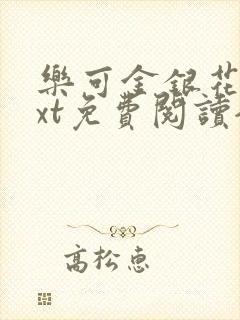 樂可金銀花
xt免費閱讀
高松惠